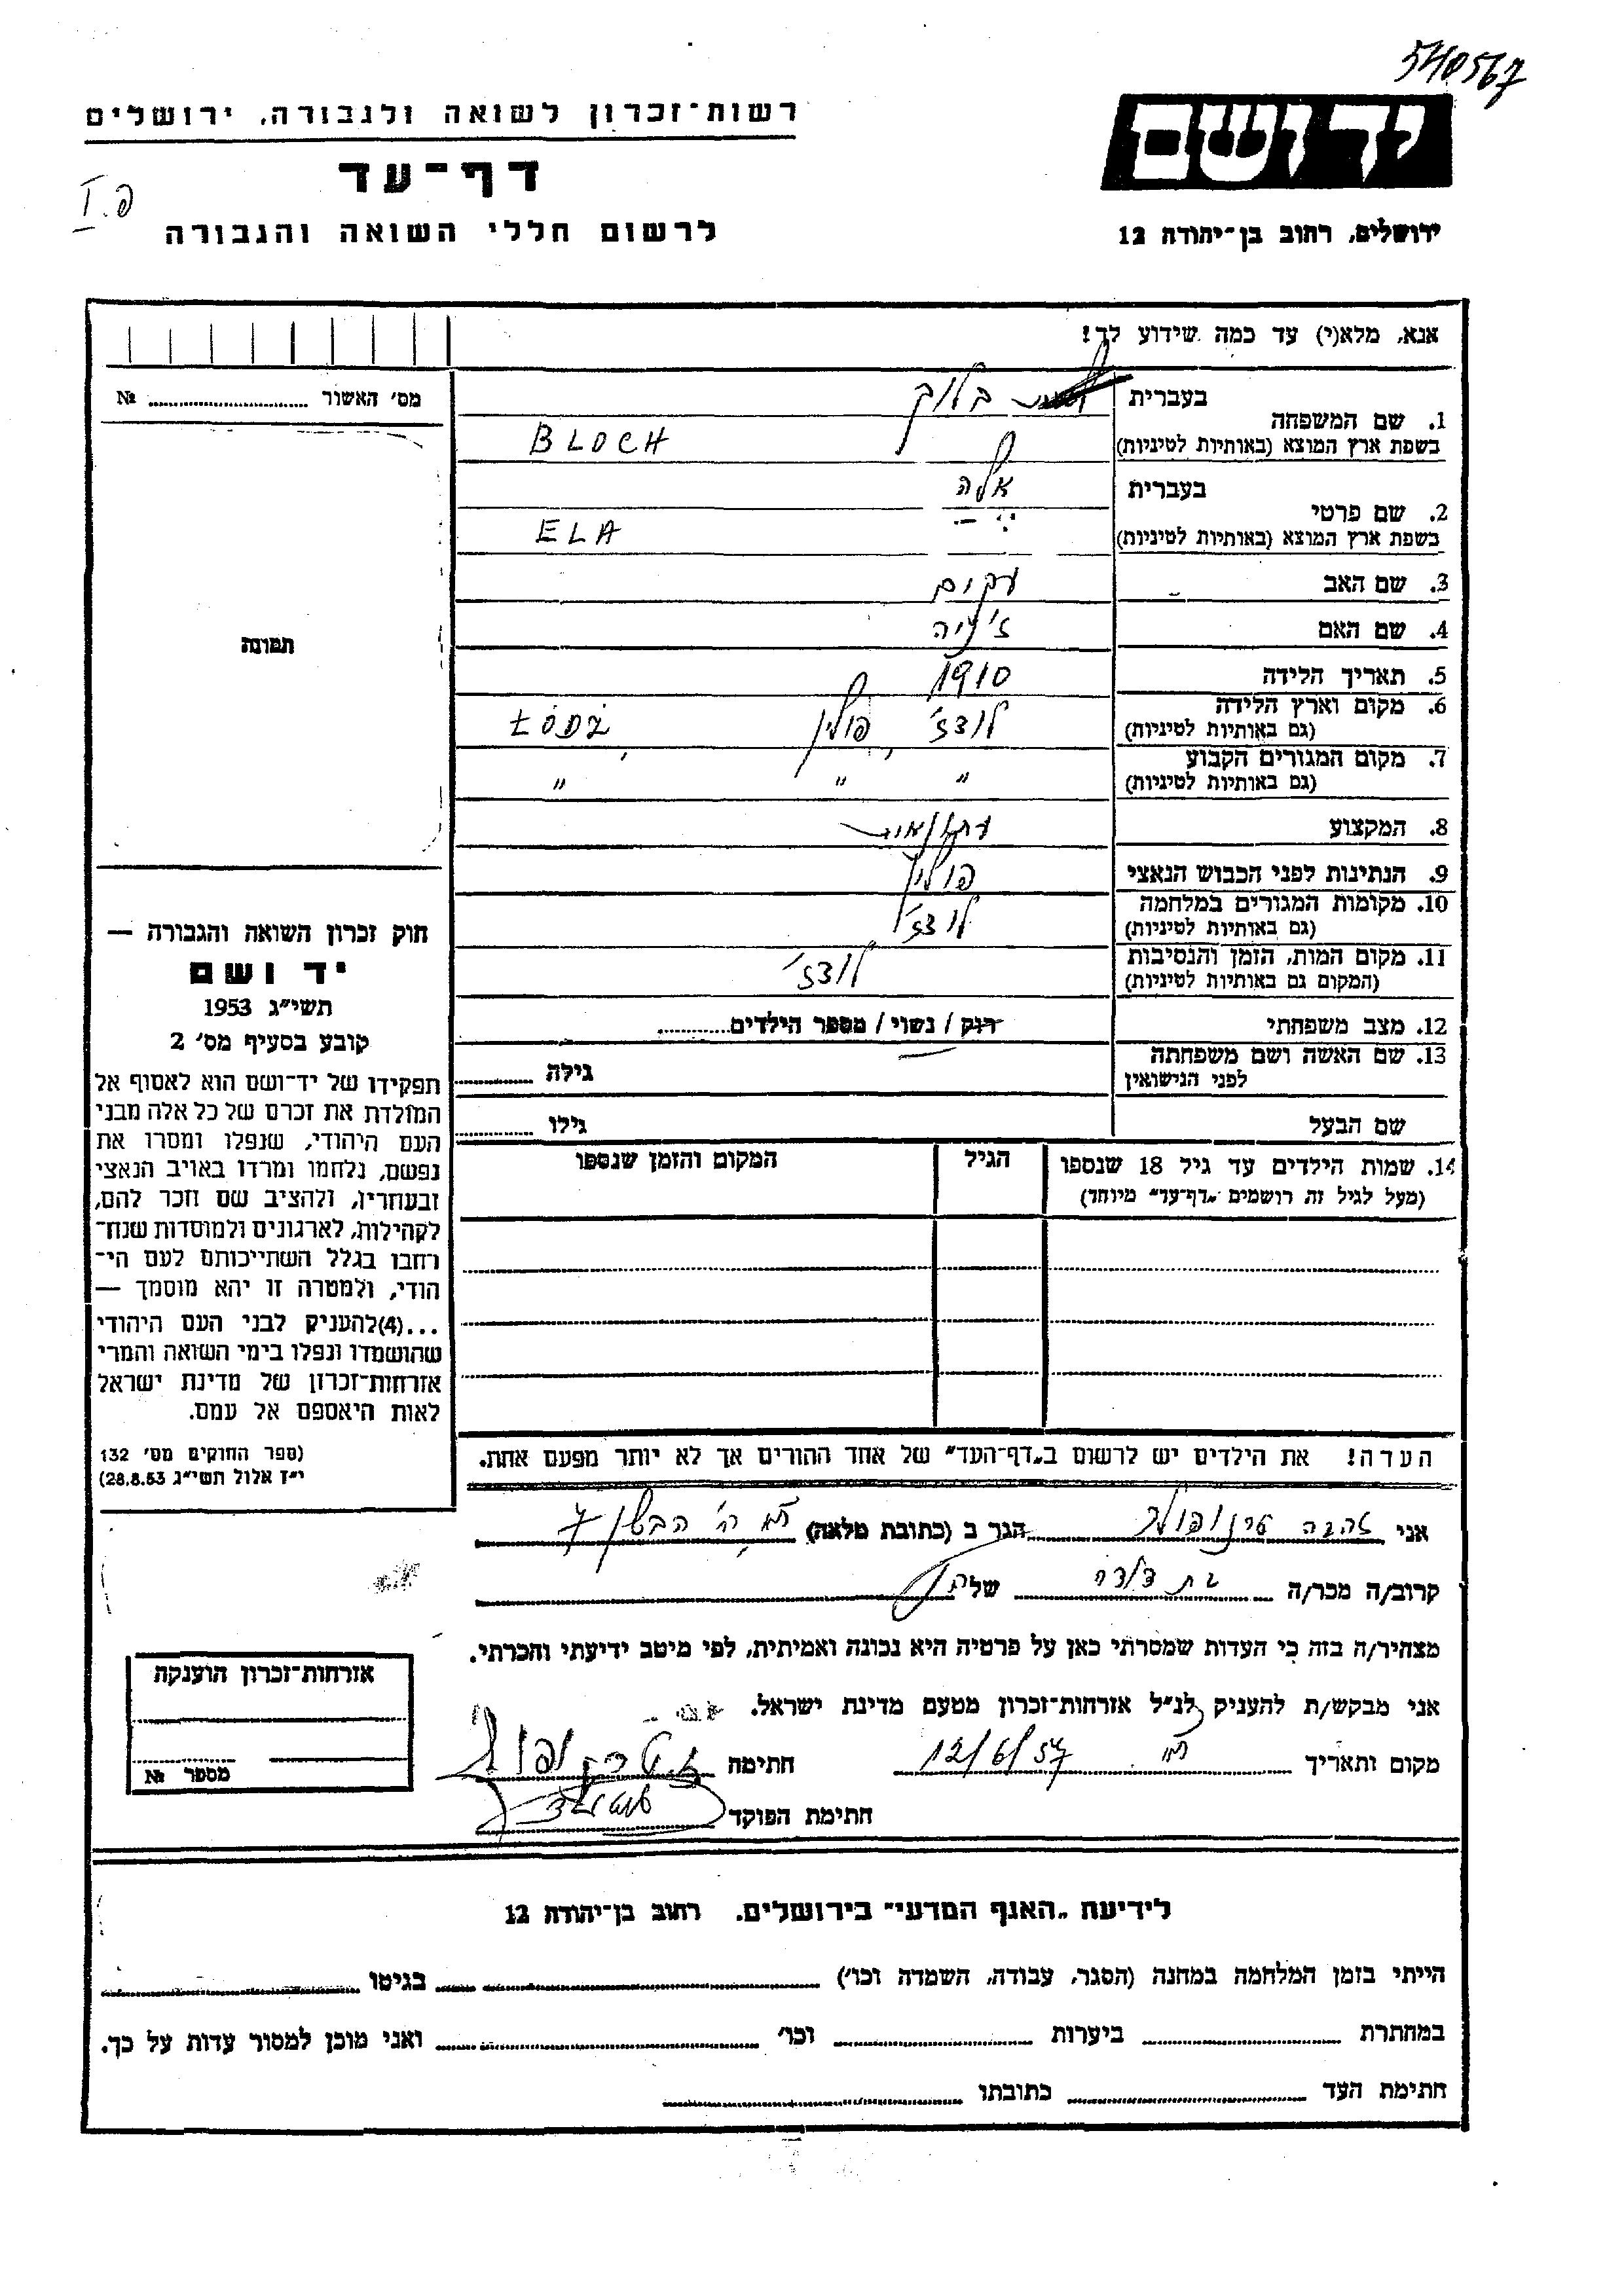 540567
רשות-זכרון לשואה ולגבורה, ירושלים
יד ושם
דף-עד
פ.I
לרשום חללי השואה והגבורה
ירושלים, רחוב בן-יהודה 12
אנא, מלא(י) עד כמה שידוע לך!
מס' האשור № 
בעברית בלוך
1. שם המשפחה
בשפת ארץ המוצא (באותיות לטיניות) BLOCH
בעברית אלה
2. שם פרטי
בשפת ארץ המוצא (באותיות לטיניות) ELA
3. שם האב
4. שם האם
תמונה
5. תאריך הלידה 1910
6. מקום וארץ הלידה לודז', פולין, ŁÓDŹ
(גם באותיות לטיניות)
7. מקום המגורים הקבוע
(גם באותיות לטיניות) " " "
8. המקצוע
9. הנתינות לפני הכבוש הנאצי פולין
10. מקומות המגורים במלחמה לודז'
(גם באותיות לטיניות)
11. מקום המות, הזמן והנסיבות לודז'
(המקום גם באותיות לטיניות)
12. מצב משפחתי רוק / נשוי / מספר הילדים
13. שם האשה ושם משפחתה
לפני הנישואין גילה
שם הבעל גילו
14. שמות הילדים עד גיל 18 שנספו הגיל המקום והזמן שנספו
(מעל לגיל זה רושמים "דף-עד" מיוחד)
חוק זכרון השואה והגבורה —
יד ושם
תשי"ג 1953
קובע בסעיף מס' 2
תפקידו של יד-ושם הוא לאסוף אל
המולדת את זכרם של כל אלה מבני
העם היהודי, שנפלו ומסרו את
נפשם, נלחמו ומרדו באויב הנאצי
ובעוזריו, ולהציב שם וזכר להם,
לקהילות, לארגונים ולמוסדות שנח-
רחבו בגלל השתייכותם לעם הי-
הודי, ולמטרה זו יהא מוסמך —
...(4)להעניק לבני העם היהודי
שהושמדו ונפלו בימי השואה והמרי
אזרחות-זכרון של מדינת ישראל
לאות היאספם אל עמם.
(ספר החוקים מס' 132
י"ז אלול תשי"ג 28.8.53)
הערה! את הילדים יש לרשום ב"דף-העד" של אחד ההורים אך לא יותר מפעם אחת.
אני זהבה הגר ב (כתובת מלאה) 7
קרוב/ה מכר/ה בת דודה של
מצהיר/ה בזה כי העדות שמסרתי כאן על פרטיה היא נכונה ואמיתית, לפי מיטב ידיעתי והכרתי.
אני מבקש/ת להעניק לנ"ל אזרחות-זכרון מטעם מדינת ישראל.
מקום ותאריך 12/6/57 חתימה
חתימת הפוקד
אזרחות-זכרון הוענקה
מספר №
לידיעת "האגף המדעי" בירושלים, רחוב בן-יהודה 12
הייתי בזמן המלחמה במחנה (הסגר, עבודה, השמדה וכו') בגיטו
במחתרת ביערות וכו' ואני מוכן למסור עדות על כך.
חתימת העד כתובתו